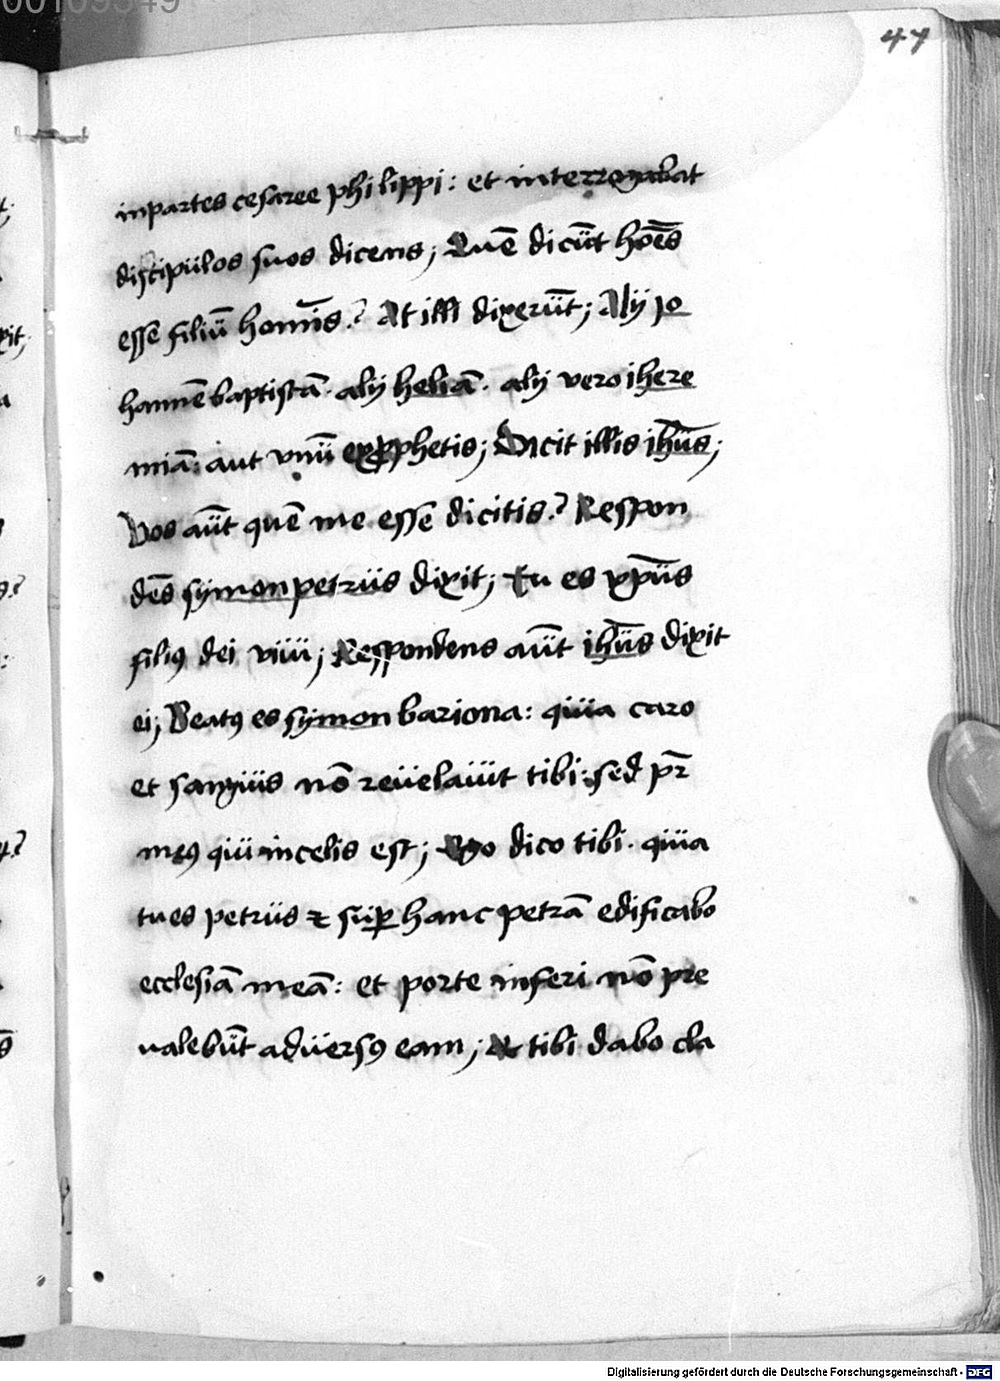 00109549
47
in partes cesaree philippi: et interrogabat
discipulos suos dicens; Quē dicūt hoēs
esse filiū homīs? At illi dixerūt; Alij Jo
hannē baptistā. alij heliā. alij vero ihere
miā: aut vnū ex prophetis; Dicit illis ihūs;
Vos aūt quē me esse dicitis? Respon
dēs symon petrus dixit; Tu es xpūs
filiꝰ dei viui; Respondens aūt ihūs dixit
ei; Beatꝰ es symon bariona: quia caro
et sanguis nō reuelauit tibi: sed pr̄
meꝰ qui in celis est; Ego dico tibi. quia
tu es petrus ⁊ suꝑ hanc petrā edificabo
ecclesiā meā: et porte inferi nō pre
ualebūt aduersꝰ eam; Et tibi dabo cla
Digitalisierung gefördert durch die Deutsche Forschungsgemeinschaft - DFG